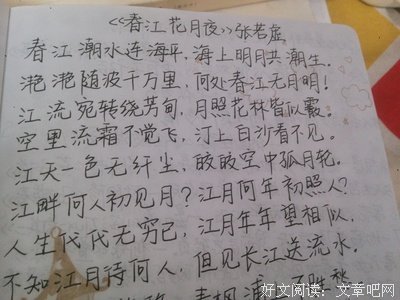 《春江花月夜》张若虚
春江潮水连海平,海上明月共潮生.
滟滟随波千万里,何处春江无月明!
江流宛转绕芳甸,月照花林皆似霰.
空里流霜不觉飞,汀上白沙看不见.
江天一色无纤尘,皎皎空中孤月轮.
江畔何人初见月?江月何年初照人?
人生代代无穷已,江月年年望相似.
不知江月待何人,但见长江送流水.
青枫浦
好文阅读:文章吧网